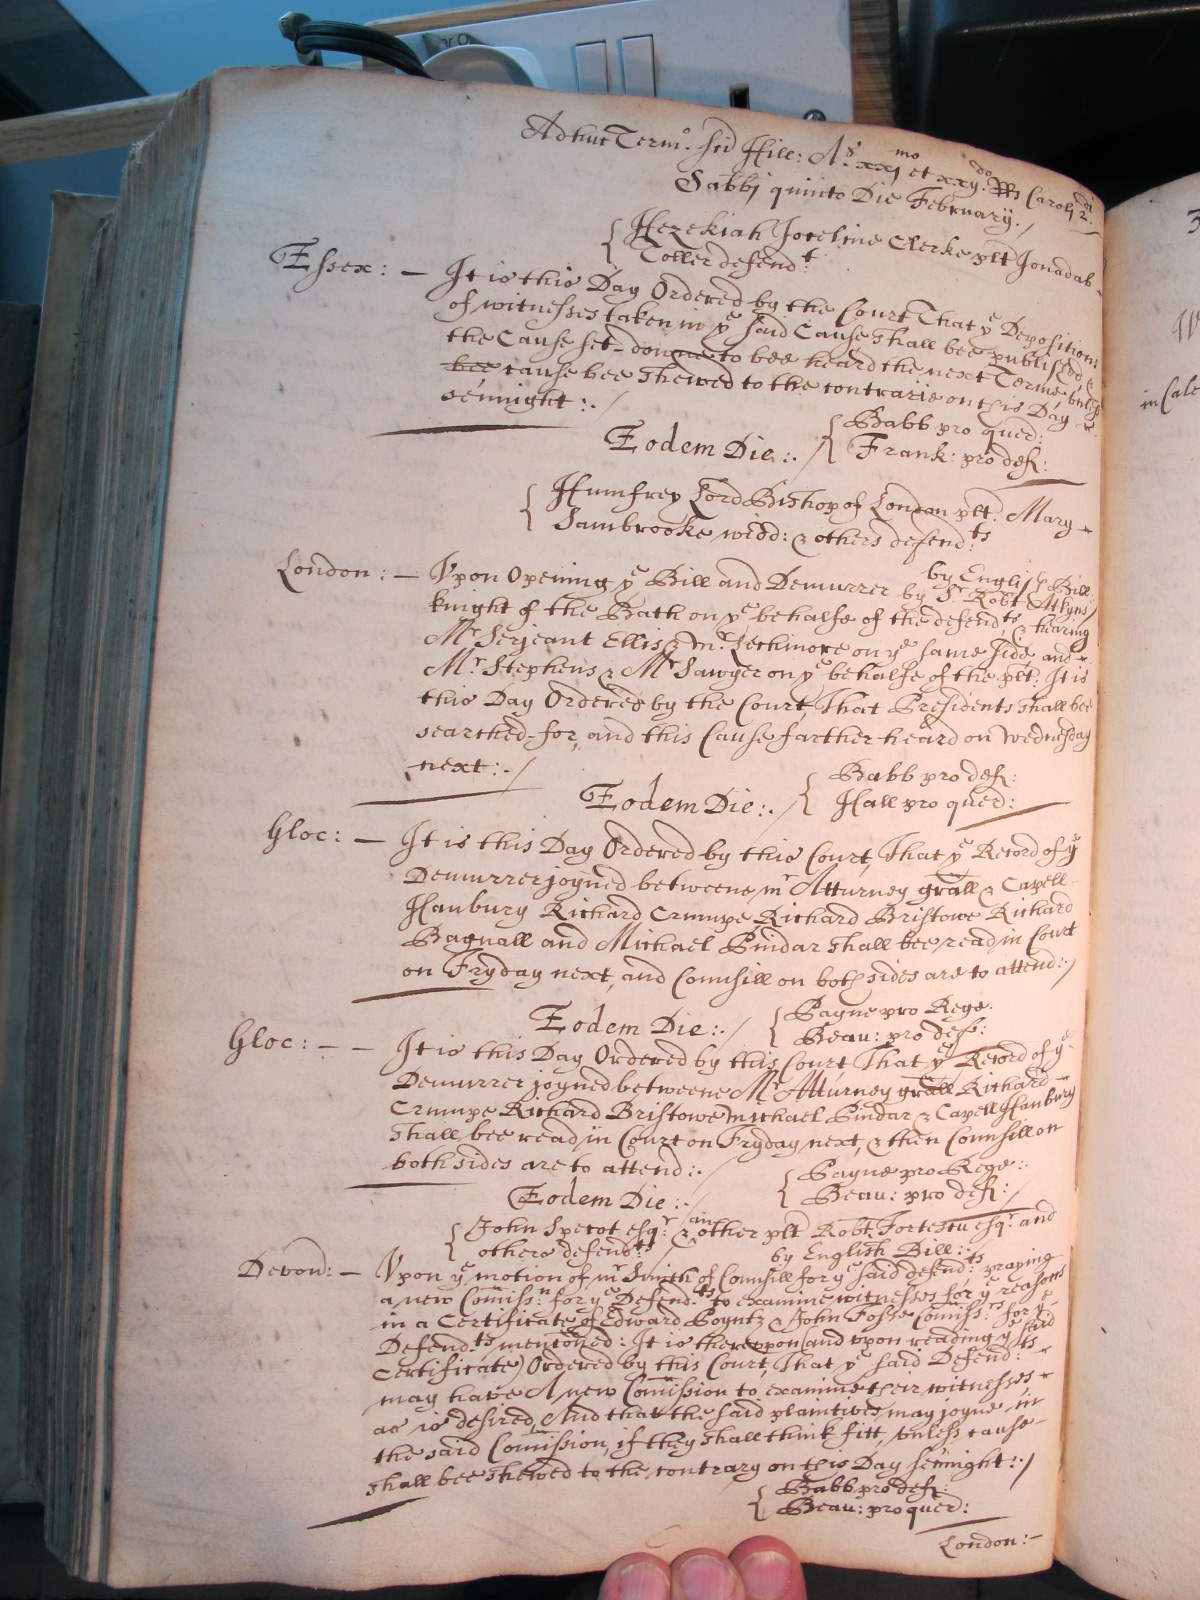 Adhuc Term.o sci Hill: A.o xxj mo et xxij do Rs Caroli 2 di
Sabbj quinto Die February./
Hezekiah Joceline Clerke plt Jonadab
Essex: — Toller defend.t
It is this Day Ordered by the Court That ye Depositions
of witnesses taken in ye said Cause shall bee published &
the Cause set-downe to bee heard the next Terme, vnless
bee cause bee shewed to the contrarie on this Day
senight:./
Eodem Die:./ Babb pro quer:
Frank: pro def:
Humfrey Lord Bishop of London plt. Mary
Sambrooke widd: & others defend:ts
by English Bill:
London: — Vpon Opening ye Bill and Demurrer by Sr Robt Atkyns
knight of the Bath on ye behalfe of the defend.ts & hearing
Mr Serjeant Ellis & mr. Lechmore on ye same side, and
Mr Stephens & Mr Sawyer on ye behalfe of the plt. It is
this Day Ordered by the Court, That Presidents shall bee
searched-for, and this Cause farther heard on Wednesday
next:./
Babb pro def:
Eodem Die:./ Hall pro quer:
Gloc: — It is this Day Ordered by this Court, That ye Record of ye
Demurrer joyned betweene mr Atturney grall & Capell
Hanbury Richard Crumpe Richard Bristowe Richard
Bagnall and Michael Pindar shall bee read in Court
on Fryday next, and Counsill on both sides are to attend:./
Eodem Die:./ Payne pro Rege:
Beau: pro def:
Gloc: — — It is this Day Ordered by this Court That ye Record of ye
Demurrer joyned betweene Mr Atturney grall Richard
Crumpe Richard Bristowe Michael Pindar & Capell Hanbury
shall bee read in Court on Fryday next, & then Counsill on
both sides are to attend:./
Payne pro Rege:
Eodem Die:./ Beau: pro def:/
John Specot esqr & another plt Robt. Fortescu esqr and
others defend:ts by English Bill:
Devon: — Vpon ye motion of mr Smith of Counsill for ye said defend:ts praying
a new Comiss:n for ye Defend.ts to examine witnesses for ye reasons
in a Certificate of Edward Poyntz & John Fosse Comiss:rs for ye
Defend.ts mentoned: It is therevpon (and vpon reading ye said
Certificate) Ordered by this Court, That ye said Defend:ts
may have A new Comission to examine their witnesses
as is desired, And that the said plaintives may joyne in
the said Comission, if they shall think fitt, vnless cause
shall bee shewed to the contrary on this Day senight:./
Babb pro def:
Beau: pro quer:
London:-
in Cale